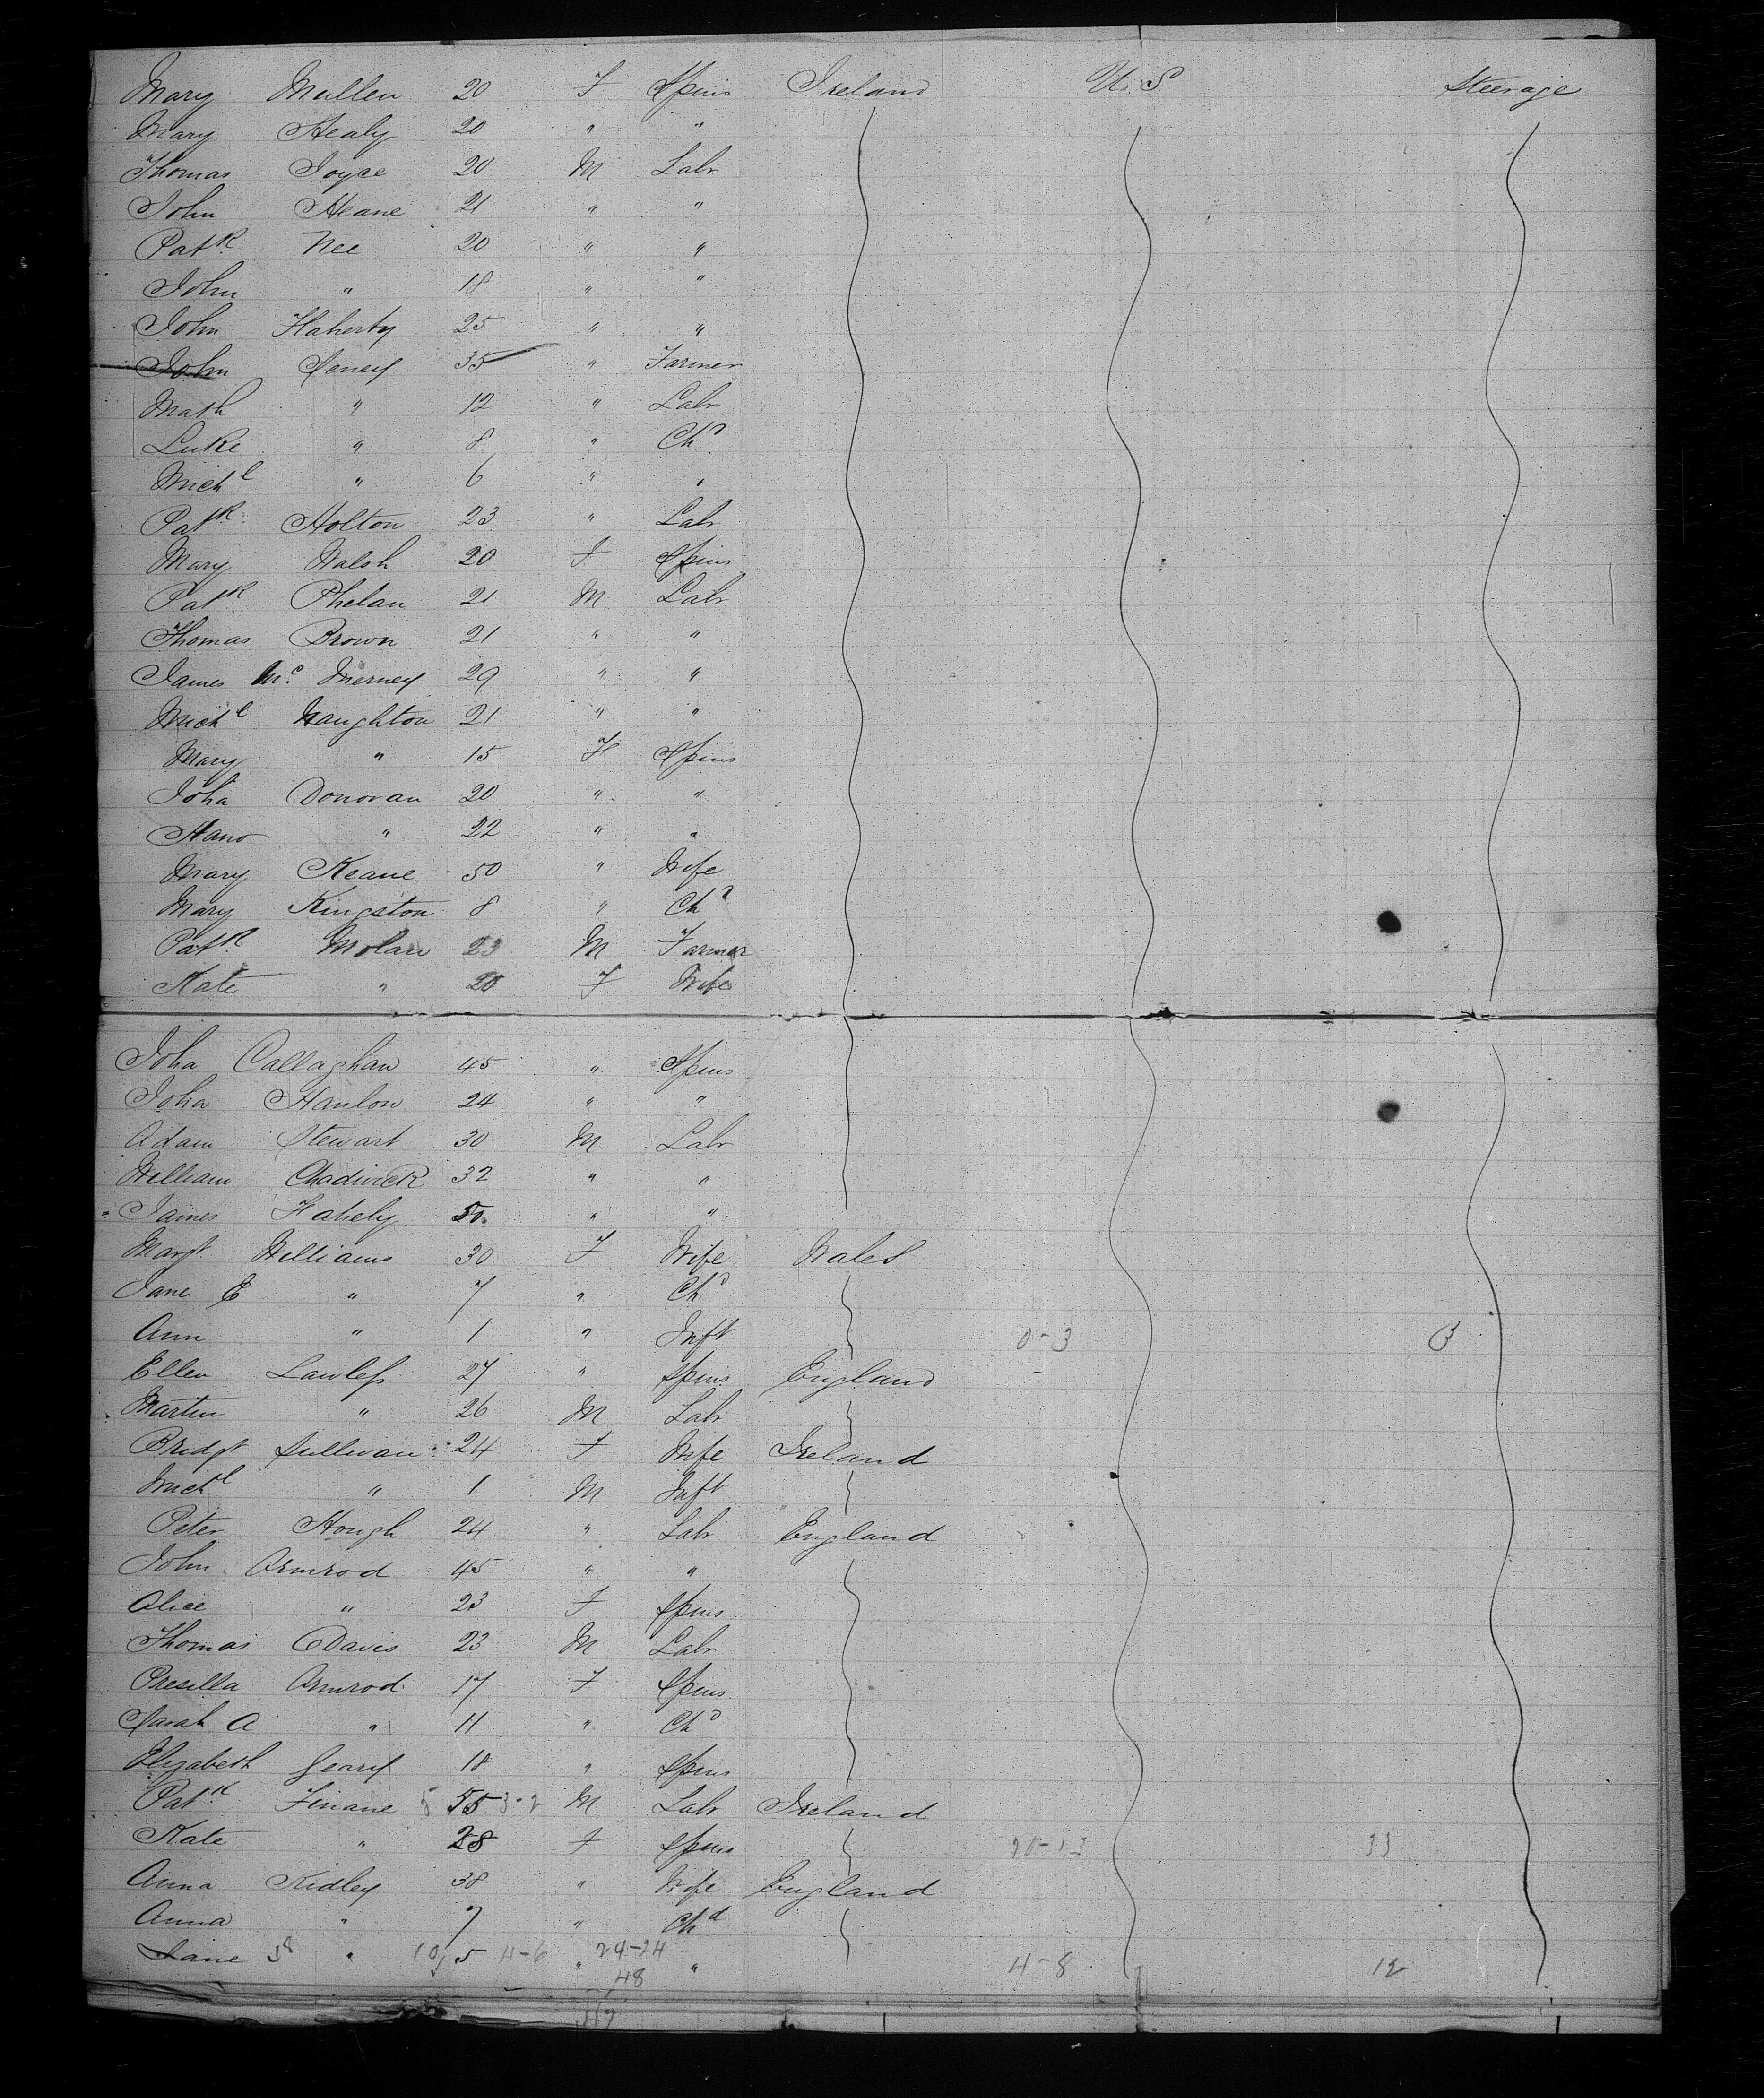 Mary Mullen 20 F Spins Ireland U.S Steerage
Mary Healy 20 " "
Thomas Joyce 20 M Labr
John Heane 21 " "
Patk Nee 20 " "
John " 18 " "
John Flaherty 25 " "
John Feney 35 " Farmer
Math " 12 " Labr
Luke " 8 " Chd
Michl " 6 " "
Patk Holton 23 " Labr
Mary Walsh 20 F Spins
Patk Phelan 21 M Labr
Thomas Brown 21 " "
James Mc Nerney 29 " "
Michl Naughton 21 " "
Mary " 15 F Spins
Joha Donovan 20 " "
Hano " 22 " "
Mary Keane 50 " Wife
Mary Kingston 8 " Chd
Patk 23 M Farmer
Kate " 20 F Wife
Joha Callaghan 45 " Spins
Joha Hanlon 24 " "
Adam Stewart 30 M Labr
William Chadwick 32 " "
James 50 " "
Margt Williams 30 F Wife Wales
Jane E " 7 " Chd
Ann " 1 " Inft 0-3 3
Ellen Lawless 27 " Spins England
Martin " 26 M Labr
Bridgt Sullivan 24 F Wife Ireland
Michl " 1 M Inft
Peter Hough 24 " Labr England
John Ormrod 45 " "
Alice " 23 F Spins
Thomas Davis 23 M Labr
Presilla Ormrod 17 F Spins
Sarah A " 11 " Chd
Elizabeth Geary 18 " Spins
Patk Finane 55 3-2 M Labr Ireland
Kate " 28 F Spins 20-13 33
Anna Ridley 38 " Wife England
Anna " 7 " Chd
Jane " 5 4-6 " 24-24 " 4-8 12
48